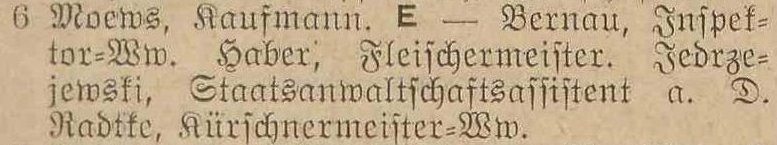 6 Moews, Kaufmann. E — Bernau, Inspek-
tor-Ww. Haber, Fleischermeister. Jedrze-
jewski, Staatsanwaltschaftsassistent a. D.
Radtke, Kürschnermeister-Ww.